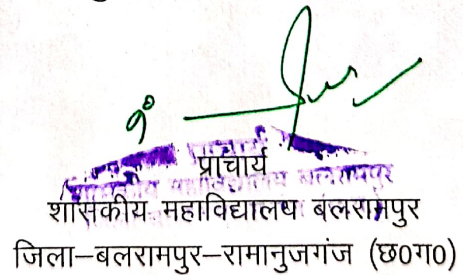 प्राचार्य
शासकीय महाविद्यालय बलरामपुर
जिला–बलरामपुर–रामानुजगंज (छ0ग0)